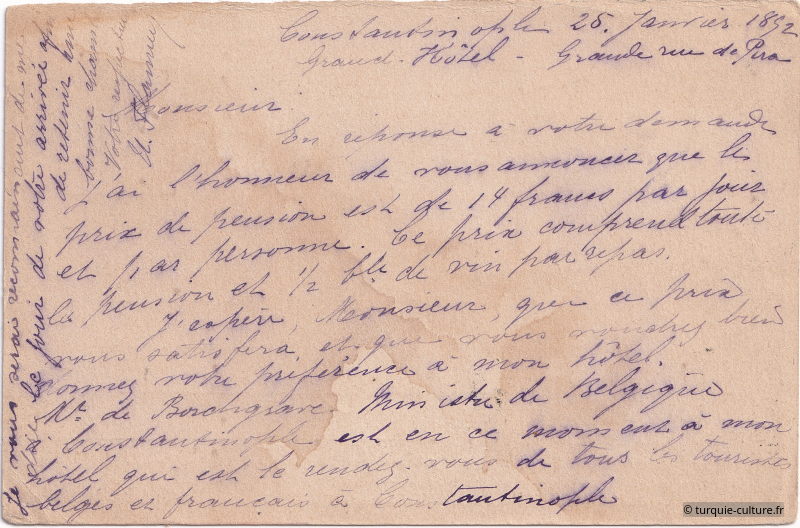 Constantinople 25. Janvier 1892
Grand-Hôtel - Grande rue de Pera
Monsieur
En réponse à votre demande
j'ai l'honneur de vous annoncer que le
prix de pension est de 14 francs par jour
et par personne. Ce prix comprend toute
la pension et 1/2 ble de vin par repas.
J'espère, Monsieur, que ce prix
vous satisfera et que vous voudrez bien
donnez votre préférence à mon hôtel.
Mr. de Borchgrave Ministre de Belgique
Constantinople est en ce moment à mon
hôtel qui est le rendez-vous de tous les touristes
belges et français à Constantinople
Je vous serai reconnaissant de me
le jour de votre arrivée afin
de retenir une
bonne cham
Votre
© turquie-culture.fr